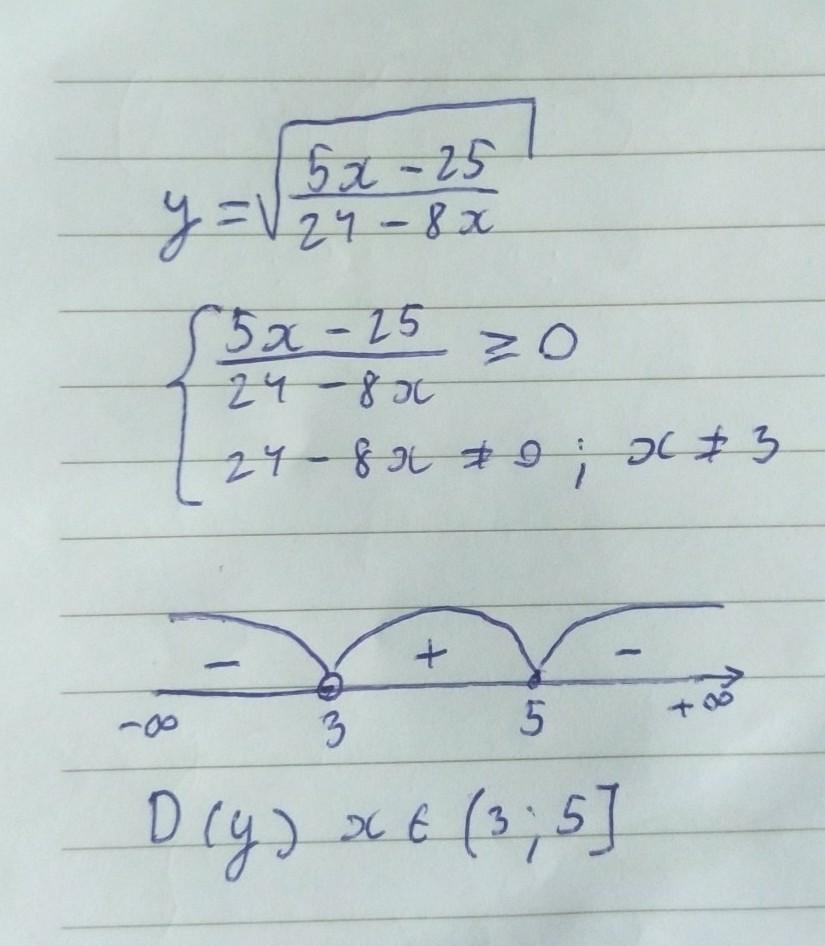 y = √(5x - 25 / 24 - 8x)
{ 5x - 25 / 24 - 8x ≥ 0
24 - 8x ≠ 0 ; x ≠ 3
- + -
-∞ 3 5 +∞
D(y) x ∈ (3; 5]